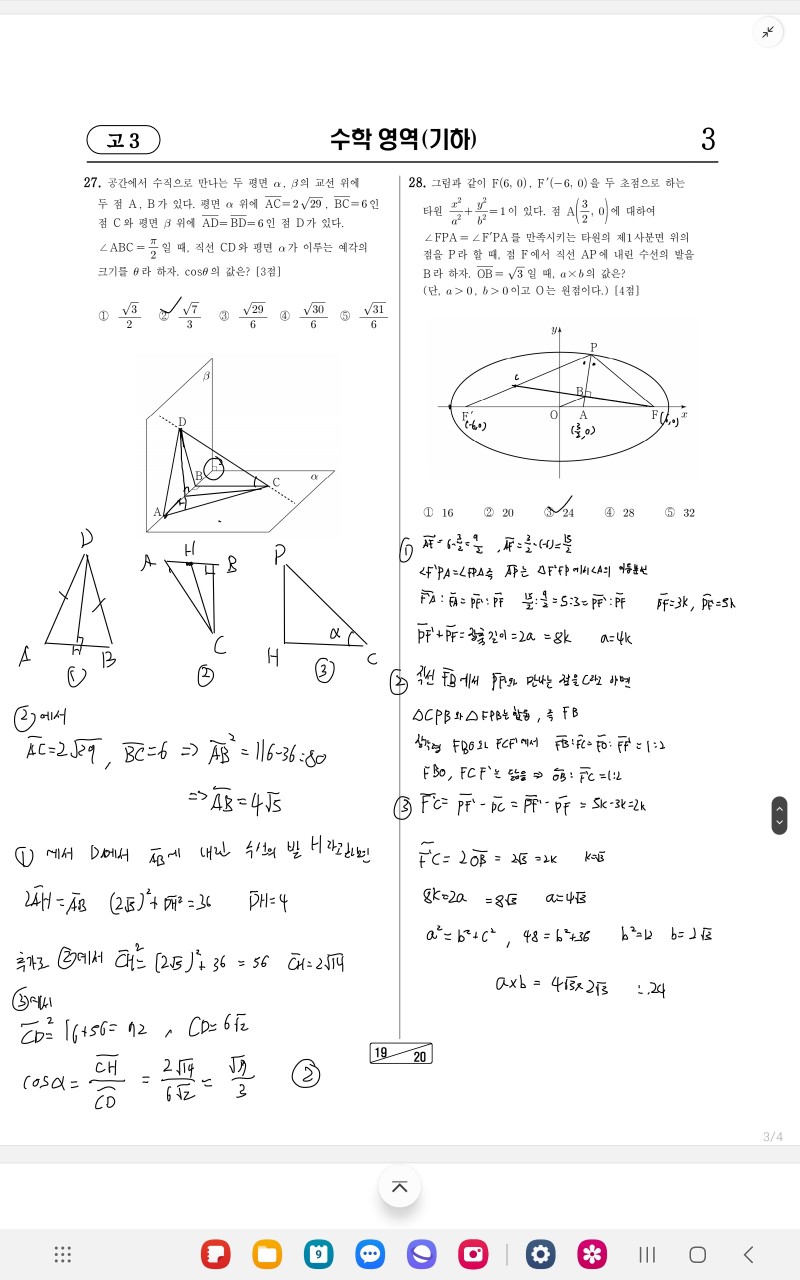 고 3
수학 영역(기하)
3
27. 공간에서 수직으로 만나는 두 평면 α, β의 교선 위에
두 점 A, B가 있다. 평면 α 위에 AC=2√29, BC=6인
점 C와 평면 β 위에 AD=BD=6인 점 D가 있다.
∠ABC=π/2 일 때, 직선 CD와 평면 α가 이루는 예각의
크기를 θ라 하자. cosθ의 값은? [3점]
① √3/2 ② √7/3 ③ √29/6 ④ √30/6 ⑤ √31/6
β
D
B
C
α
A
D
A
B
①
A
H
B
C
②
P
H
α
C
③
②에서
AC=2√29, BC=6 => AB²=116-36=80
=> AB=4√5
① 에서 D에서 AB에 내린 수선의 발 H라고하면
2AH=AB (2√5)²+DH²=36 DH=4
추가로 ②에서 CH²=(2√5)²+36=56 CH=2√14
③에서
CD²=16+56=72, CD=6√2
cosα=CH/CD=2√14/6√2=√7/3 ②
28. 그림과 같이 F(6, 0), F′(−6, 0)을 두 초점으로 하는
타원 x²/a²+y²/b²=1이 있다. 점 A(3/2, 0)에 대하여
∠FPA=∠F′PA를 만족시키는 타원의 제1사분면 위의
점을 P라 할 때, 점 F에서 직선 AP에 내린 수선의 발을
B라 하자. OB=√3일 때, a×b의 값은?
(단, a>0, b>0이고 O는 원점이다.) [4점]
y
P
c
B
F′
O
A
F
x
(-6,0)
(3/2,0)
(6,0)
① 16 ② 20 ③ 24 ④ 28 ⑤ 32
① AF=6-3/2=9/2, AF′=3/2-(-6)=15/2
∠F′PA=∠FPA즉 AP는 △F′FP에서∠A의 이등분선
F′A:FA=PF′:PF 15/2:9/2=5:3=PF′:PF PF=3k, PF′=5k
PF′+PF=장축길이=2a=8k a=4k
② 직선 FB에서 PF′와 만나는 점을 C라고 하면
△CPB와 △FPB는합동, 즉 FB
삼각형 FBO와 FCF′에서 FB:FC=FO:FF′=1:2
FBO, FCF′는 닮음 => OB:F′C=1:2
③ F′C=PF′-PC=PF′-PF=5k-3k=2k
F′C=2OB=2√3=2k k=√3
8k=2a =8√3 a=4√3
a²=b²+c², 48=b²+36 b²=12 b=2√3
a×b=4√3×2√3 ∴24
19
20
3/4
9